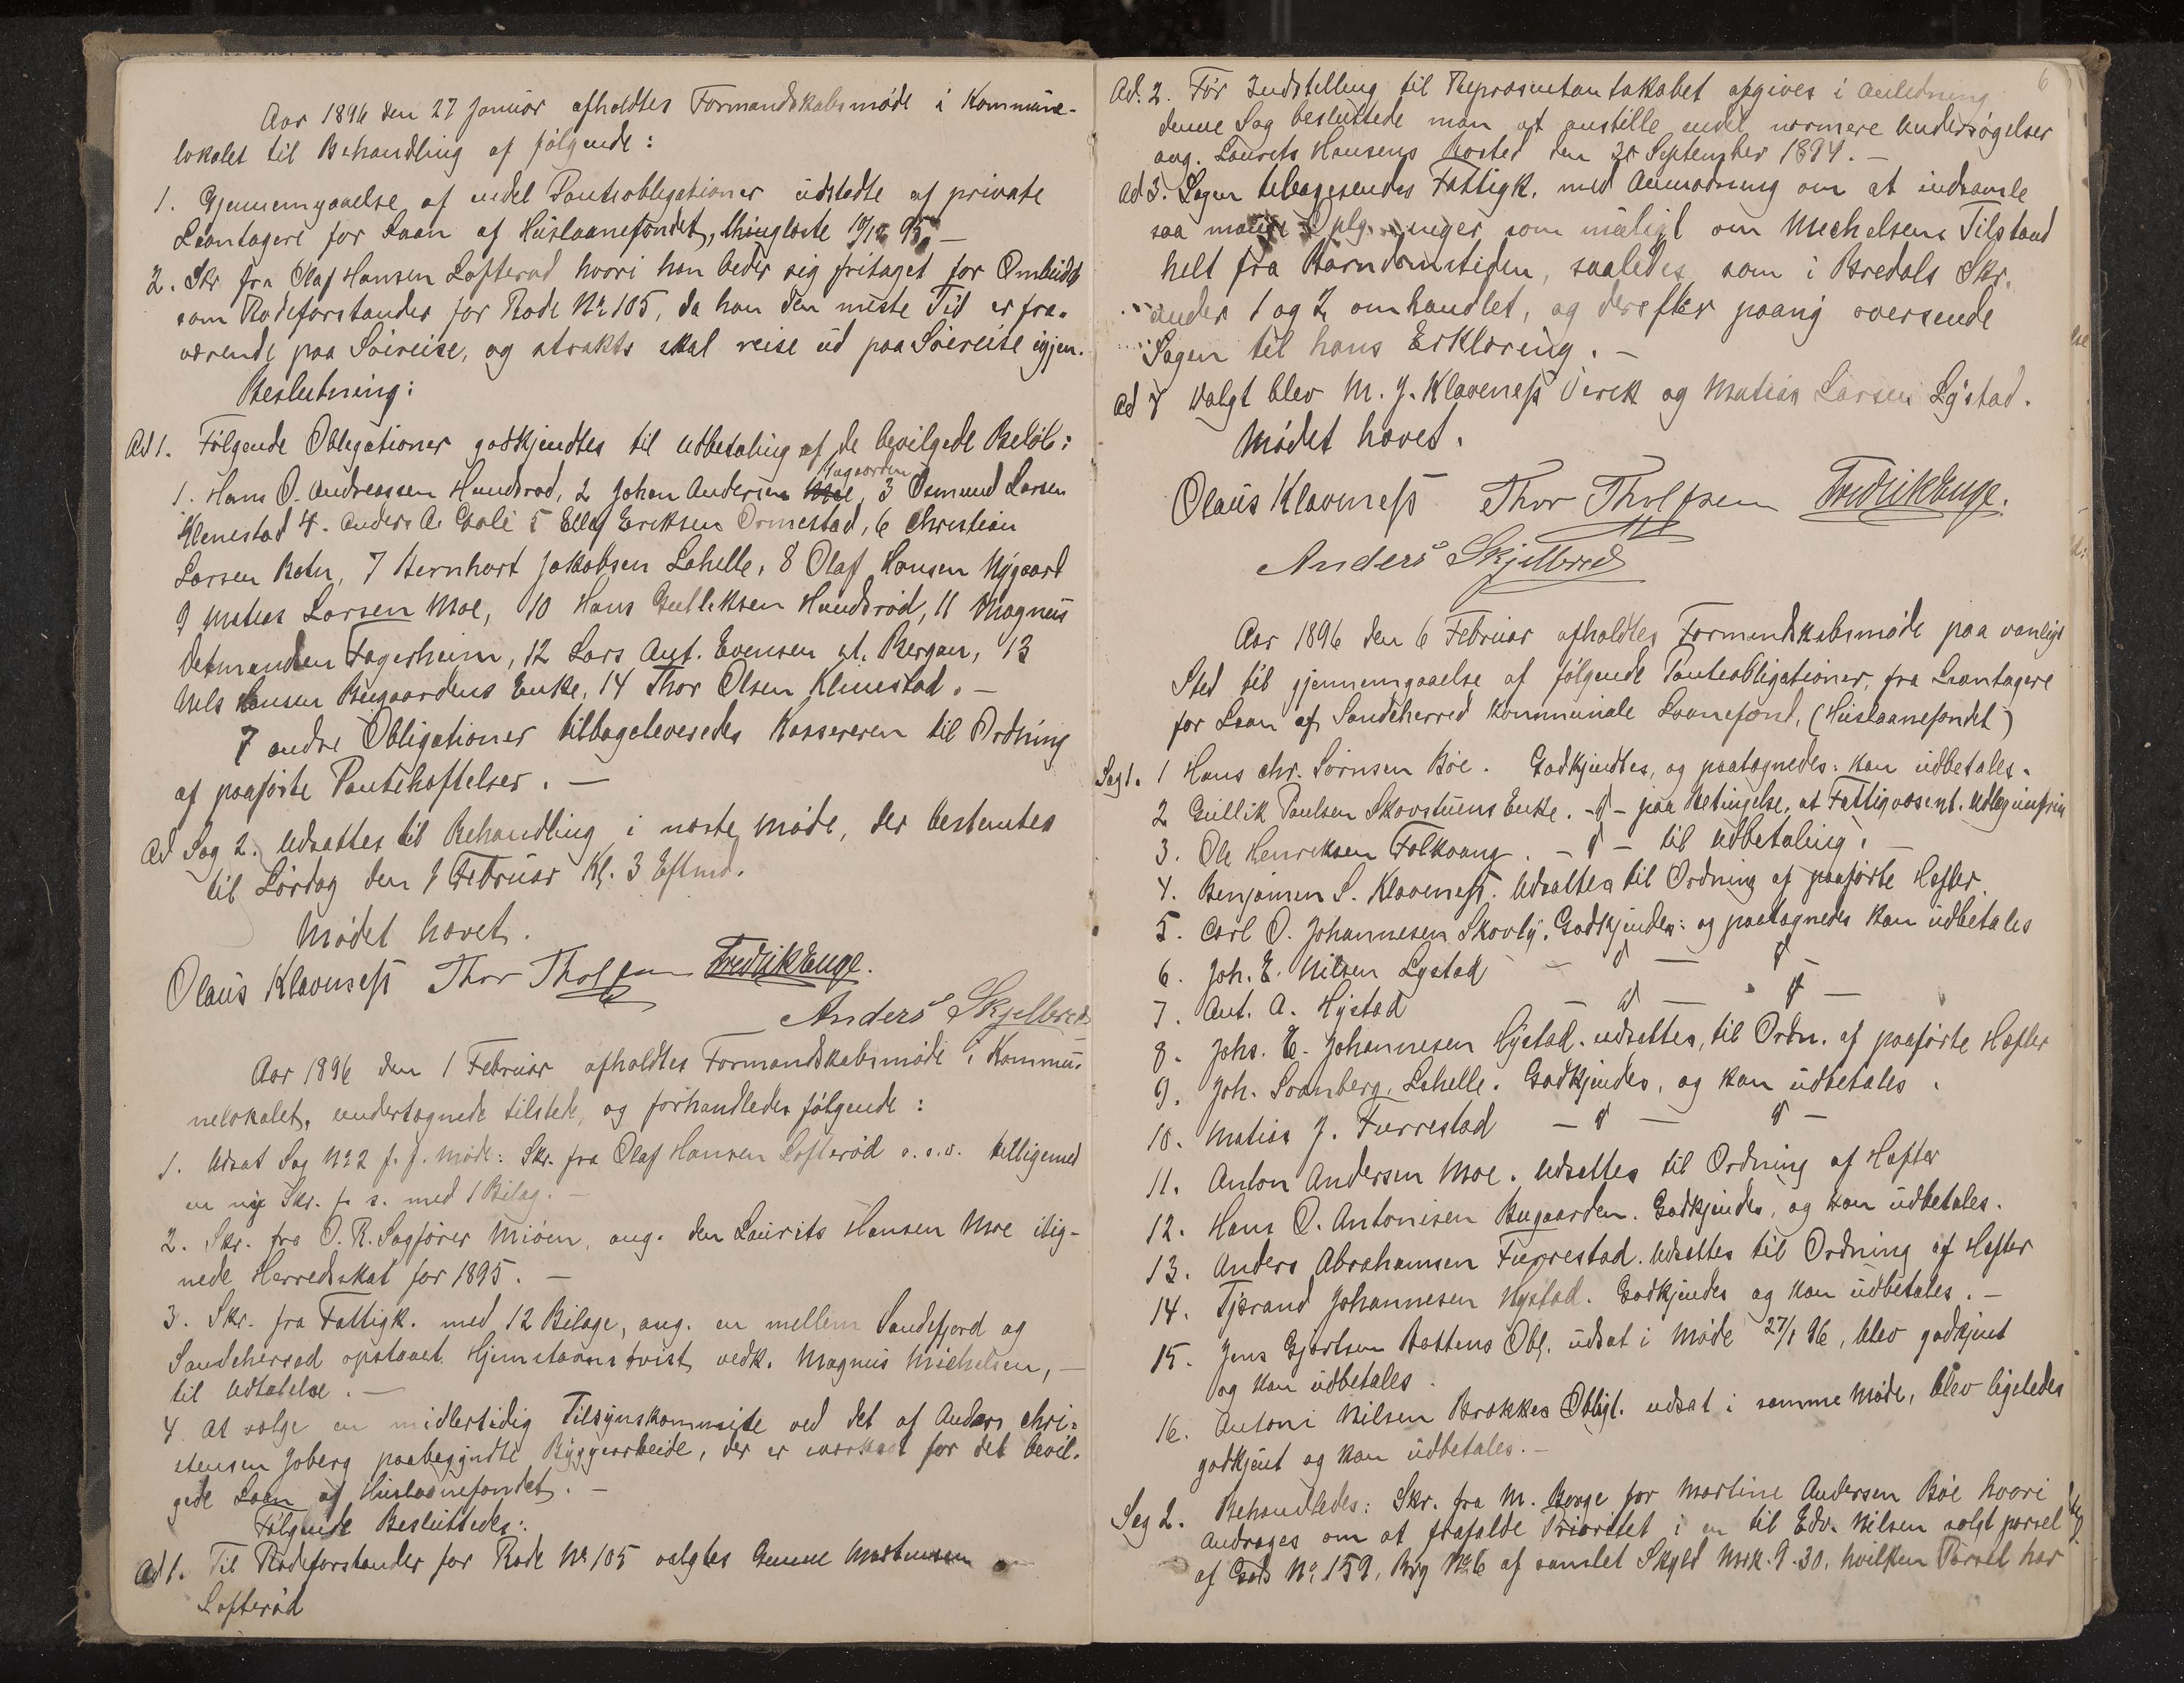 Aar 1896 den 27 Januar afholdtes Formandskabsmøde i Kommune-
lokalet til Behandling af følgende:
1. Gjennemgaaelse af endel Panteobligationer udstedte af private
Laantagere for Laan af Huslaanefondet, thinglæste 19/12 95. —
2. Skr fra Olaf Hansen Lofterød hvori han beder sig fritaget for Ombudet
som Rodeforstander for Rode No 105, da han den meste Tid er fra-
værende paa Søireise, og strakts skal reise ud paa Søireise igjen.
Beslutning:
Ad 1. Følgende Obligationer godkjendtes til Udbetaling af de bevilgede Beløb:
1. Hans O. Andreassen Hundsrød, 2 Johan Andersen Bugaarden, 3 Osmund Larsen
Klenestad 4. Anders A. Gjøli 5 Ellef Eriksen Ormestad, 6 Christian
Larsen Botn, 7 Bernhart Jakobsen Lahelle, 8 Olaf Hansen Nygaard
9 Matias Larsen Moe, 10 Hans Gulliksen Hundsrød, 11 Magnus
Detmundsen Fagerheim, 12 Lars Ant. Evensen st. Bergan, 13
Nels Hansen Bugaardens Enke, 14 Thor Olsen Klinestad. —
7 andre Obligationer tilbageleveredes Kassereren til Ordning
af paaførte Pantehæftelser. —
Ad Sag 2. Udsattes til Behandling i næste Møde, der bestemtes
til Lørdag den 1 Februar Kl. 3 Eftmd.
Mødet hævet.
Olaus Klavness Thor Tholfsen Fredrik Enge.
Anders Skjelbred
Aar 1896 den 1 Februar afholdtes Formandskabsmøde i Kommu-
nelokalet, undertegnede tilstede, og forhandledes følgende:
1. Udsat Sag No 2 f. f. møde: Skr. fra Olaf Hansen Lofterød o.s.v. tilligemed
en ny Skr. f. s. med 1 Bilag. —
2. Skr. fra O. R. Sagfører Miøen, ang. den Laurits Hansen Moe ilig-
nede Herredsskat for 1895. —
3. Skr. fra Fattigk. med 12 Bilage, ang. en mellem Sandefjord og
Sandeherred opstaaet Hjemstavnstvist vedk. Magnus Michelsen, —
til Udtalelse. —
4 At vælge en midlertidig Tilsynskommite ved det af Anders Chri-
stensen Joberg paabegyndte Byggearbeide, der er for det bevil-
gede Laan af Huslaanefondet. —
Følgende Besluttedes:
Ad 1. Til Rodeforstander for Rode No 105 valgtes Gunne Martinsen
Lofterød
6
Ad. 2. Før Indstilling til Repræsentantskabet afgives i Anledning
denne Sag besluttede man at anstille endel nærmere Undersøgelser
ang. Laurits Hansens Bosted den 30 September 1894. —
Ad 3. Sagen tilbagesendes Fattigk. med Anmodning om at indsamle
saa mange Oplysninger som muligt om Mechelsens Tilstand
helt fra Barndomstiden, saaledes som i Bredals Skr.
under 1 og 2 omhandlet, og derefter paany oversende
Sagen til hans Erklæring. —
Ad 4 Valgt blev M. J. Klavness Virik og Matias Larsen Lystad.
Mødet hævet.
Olaus Klavness Thor Tholfsen Fredrik Enge.
Anders Skjelbred
Aar 1896 den 6 Februar afholdtes Formandskabsmøde paa vanligt
Sted til gjennemgaaelse af følgende Panteobligationer, fra Laantagere
for Laan af Sandeherred kommunale Laanefond, (Huslaanefondet)
Sag 1. 1 Hans Chr. Sørnsen Bøe. Godkjendtes, og paategnedes: kan udbetales.
2 Gullik Paulsen Skovstuens Enke. - d - paa Betingelse, at Fattigvæsent. Udlæg
3. Ole Henriksen Folkvang. - d - til Udbetaling. —
4. Benjamin S. Klavness. Udsattes til Ordning af paaførte Hefter.
5. Carl O. Johannesen Skovly. Godkjendes: og paategnedes kan udbetales
6. Joh. E. Nilsen Lystad — d — d
7. Ant. A. Hystad — d — d —
8. Johs. E. Johannesen Hystad. udsattes, til Ordn. af paaførte Hefter
9. Joh. Svanberg, Lahelle. Godkjendes, og kan udbetales.
10. Matias J. Furrestad — d — d —
11. Anton Andersen Moe. Udsettes til Ordning af Hefter
12. Hans O. Antonisen Bugaarden. Godkjendes, og kan udbetales.
13. Anders Abrahamsen Furrestad. Udsettes til Ordning af Hefter
14. Tjærand Johannesen Hystad. Godkjendes og kan udbetales. —
15. Jens Gjertsen Bakkens Obl. udsat i Møde 27/1 96, blev godkjent
og kan udbetales.
16. Antoni Nilsen Brækkes Obligt. udsat i samme Møde, blev ligeledes
godkjent og kan udbetales. —
Sag 2. Behandledes: Skr. fra M. Borge for Martine Andersen Bøe hvori
andrages om at frafalde Prioritet i en til Edv. Nilsen solgt parsel
af Gads No. 159, Brg No 6 af samlet Skyld Mrk. 9-30. hvilken Parsel har